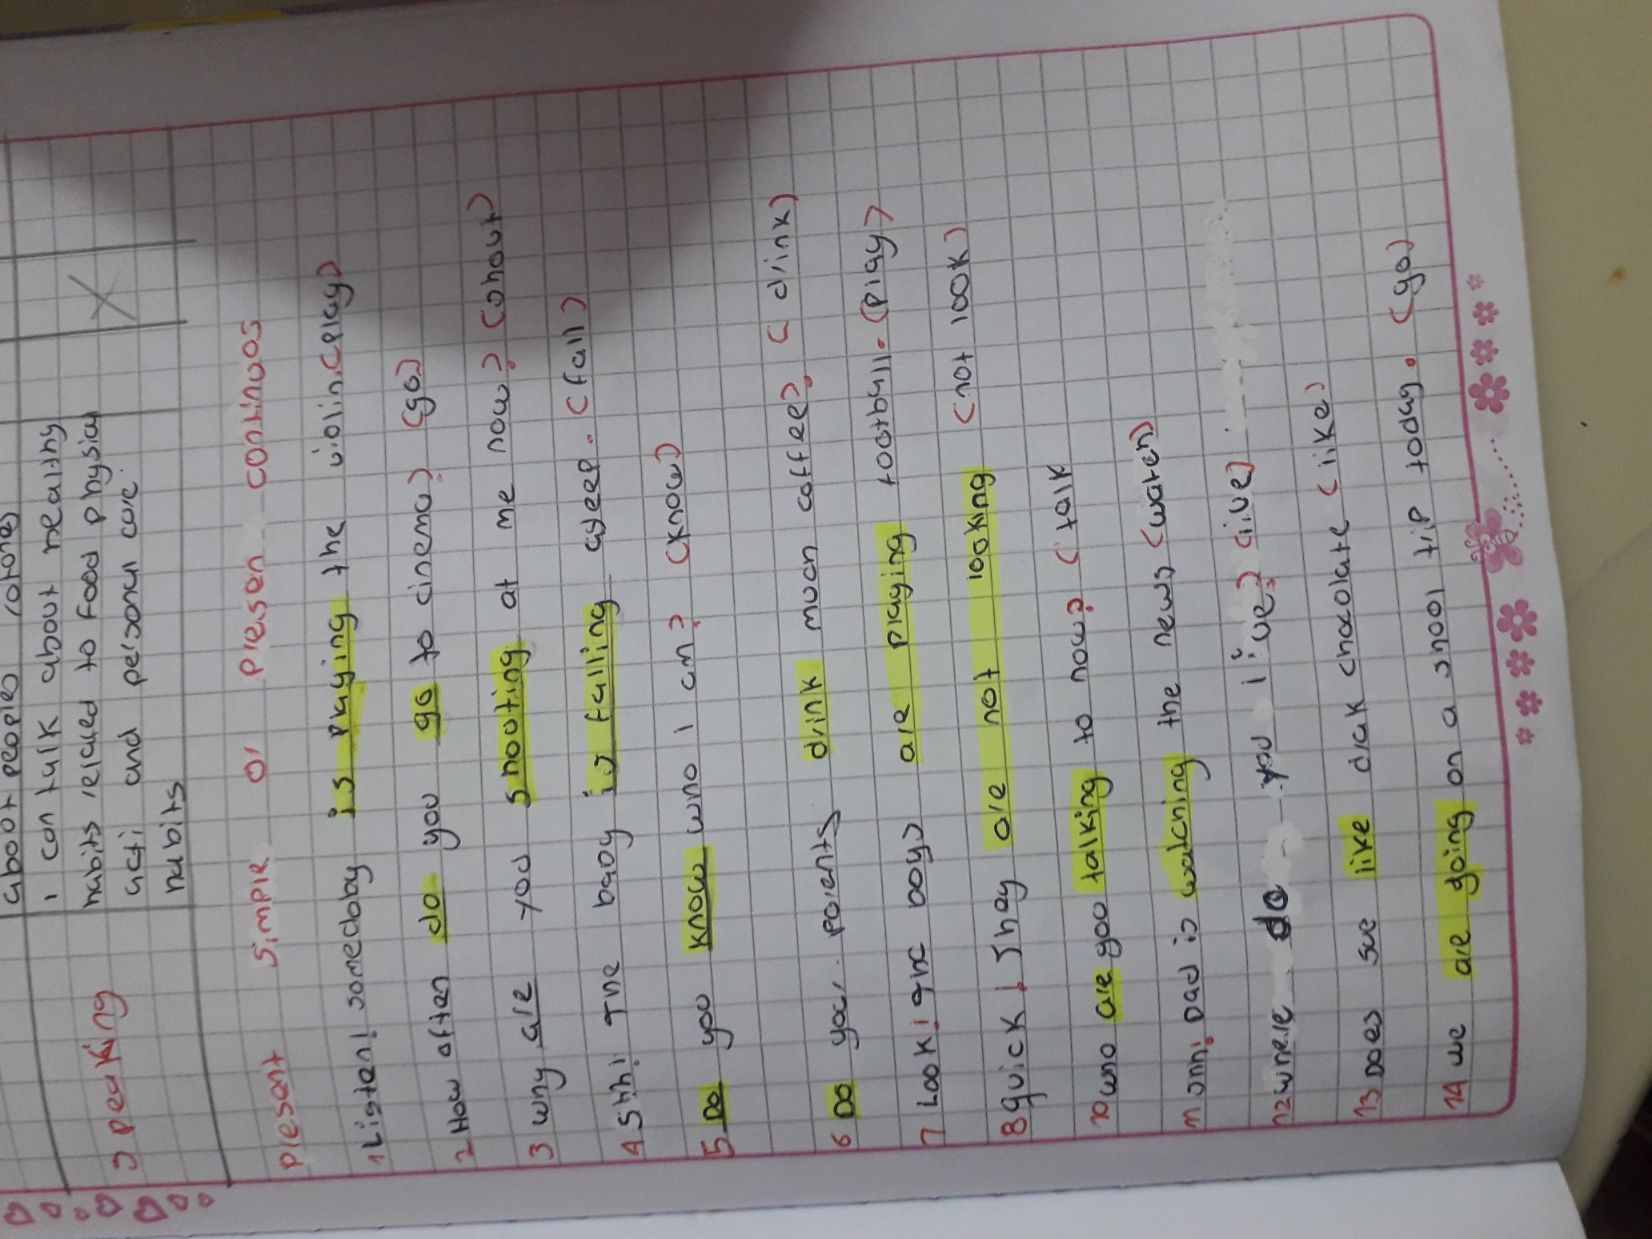 about peoples rotores
I can talk about healthy
habits related to food physical
acti and personan care
habits
speaking
present simple or presen continuos
1 Listen! somedoby is playing the violin.(play)
2 How often do you go to cinema? (go)
3 why are you shouting at me now? (shout)
4 Shh! The baby is falling asleep. (fall)
5 Do you know who I am? (know)
6 Do your parents drink much coffee? (drink)
7 Look! The boys are playing footbyll. (play)
8 quick! They are not looking (not look)
10 who are you talking to now? (talk
11 Shh! Dad is watching the news (watch)
12 where do you live? (live)
13 Does sue like dark chocolate (like)
14 we are going on a shool tip today. (go)